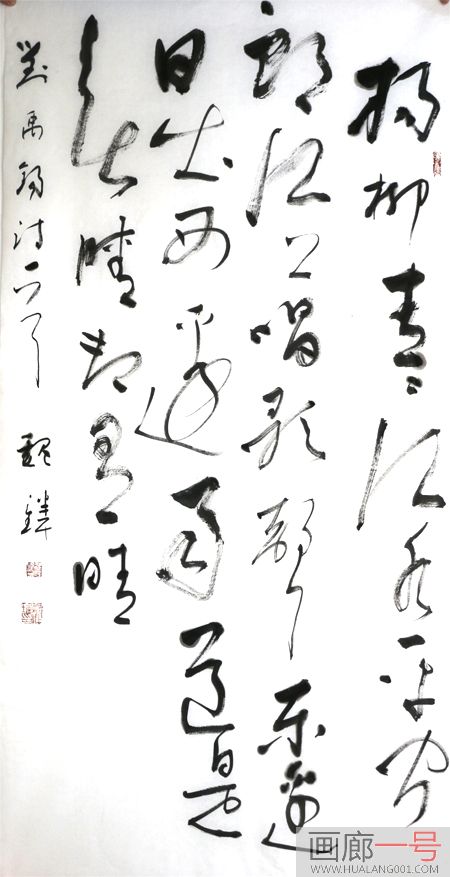 楊柳青青江水平聞
郎江上唱歌聲東邊
日出西邊雨道是
無晴却有晴
劉禹錫詩一首 魏
画廊一号
WWW.HUALANG001.COM